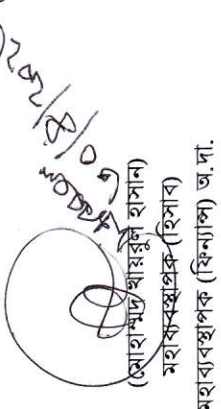 (মোহাম্মদ খায়রুল হাসান)
মহাব্যবস্থাপক (হিসাব)
মহাব্যবস্থাপক (ফিন্যান্স) অ.দা.